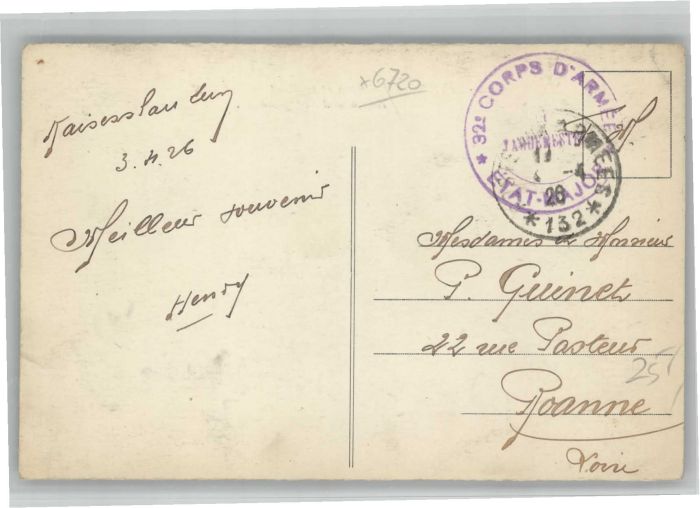 Kaiserslautern
3.4.26
Meilleur souvenir
Henry
x6720
* 32e CORPS D'ARMEE *
ETAT-MAJOR
26
*132*
Mesdames et Monsieur
P. Guinet
22 rue Pasteur
Roanne
Loire
25